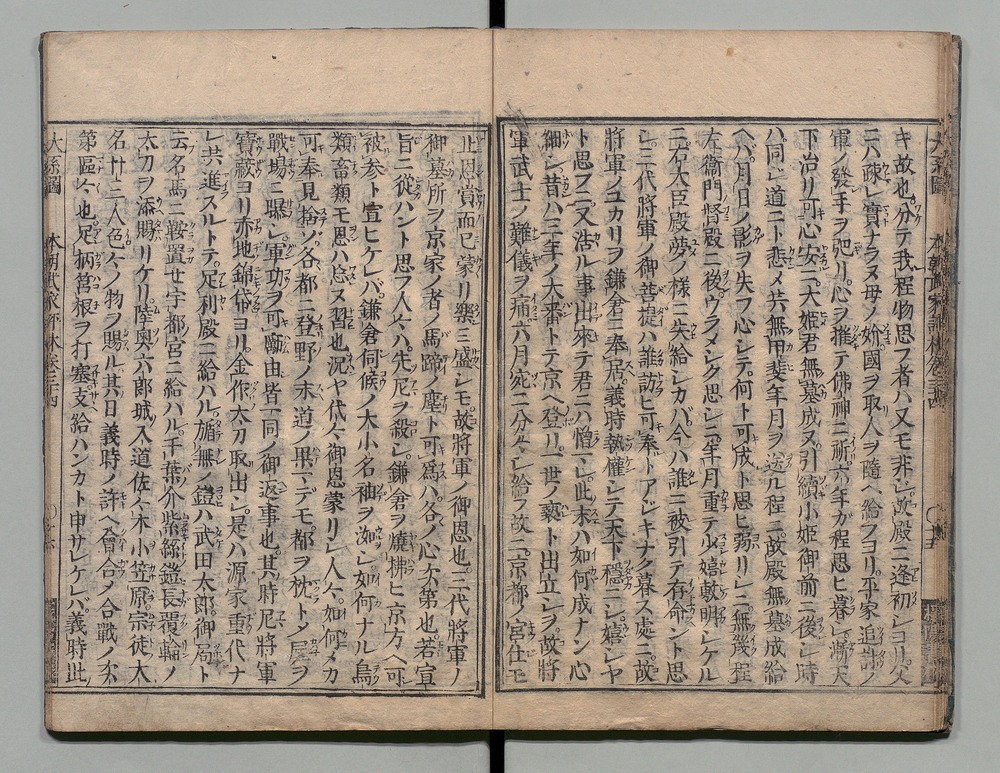 キ故也分テ我程物思フ者ハ又モ非シ故殿ニ逢初レヨリ父
ニハ疎レ實ナラヌ母ノ妳國ヲ取人ヲ隨ヘ給フヨリ平家追討ノ
軍ノ發手ヲ弛リ心ヲ摧テ佛神ニ祈六年ガ程思ヒ暮シ漸天
下治リ可心安ニ大姫君無墓成又引續小姫御前ニ後シ時
ハ同シ道ニト悲メ共無甲斐年月ヲ送ル程ニ故殿無墓成給
ヘハ月日ノ影ヲ失フ心シテ何ト可成ト思ヒ弱リシニ無幾程
左衞門督殿ニ後ウラメシク思シニ年月重テ少嬉敷明シケル
ニ右大臣殿夢ノ様ニ失給シカバ今ハ誰ニ被引テ存命ント思
シニ二代將軍ノ御菩提ハ誰訪ヒ可奉トアヂキナク暮ス處ニ故
將軍ノユカリヲ鎌倉ニ奉居義時執權シテ天下穩ニシ嬉シヤ
ト思フニ又浩ル事出來テ君ニハ憎マレ此末ハ如何成ナン心
細シ昔ハ三年ノ大番トテ京ヘ登リ一世ノ褻ト出立シヲ故將
軍武士ノ難儀ヲ痛六月宛ニ分ケシ給フ故ニ京都ノ宮仕モ
止恩賞而已蒙リ樂ミ盛レモ故將軍ノ御恩也三代將軍ノ
御墓所ヲ京家ノ者ノ馬蹄ノ塵ト可爲ハ各ノ心々第也若宣
旨ニ從ハント思フ人々ハ先尼ヲ殺シ鎌倉ヲ燒拂ヒ京方ヘ可
被参ト宣ヒケレバ鎌倉伺候ノ大小名袖ヲ泌シ如何ナル鳥
類畜類モ思ハ忘ヌ習也況ヤ代々御恩蒙リシ人々如何メカ
可奉見捨ゾ各都ニ登野ノ末道ノ果マデモ都ヲ枕トメ屍ヲ
戰場ニ曝シ軍功ヲ可勵由皆一同ノ御返事也其時尼將軍
寶藏ヨリ赤地錦帋ヨリ金作太刀取出シ是ハ源家重代ナ
レ共進スルトテ足利殿ニ給ハル楯無ノ鎧ハ武田太郎御局ト
云名馬ニ鞍置セ宇都宮ニ給ハル千葉介紫絲鎧長覆輪ノ
太刀ヲ添賜リケリ陸奥六郎城入道佐々木小笠原宗徒大
名廿三人色々ノ物ヲ賜ル其日義時ノ許ヘ會合メ合戰ノ次
第區々也足柄筥根ヲ打塞支給ハンカト申サレケレバ義時此